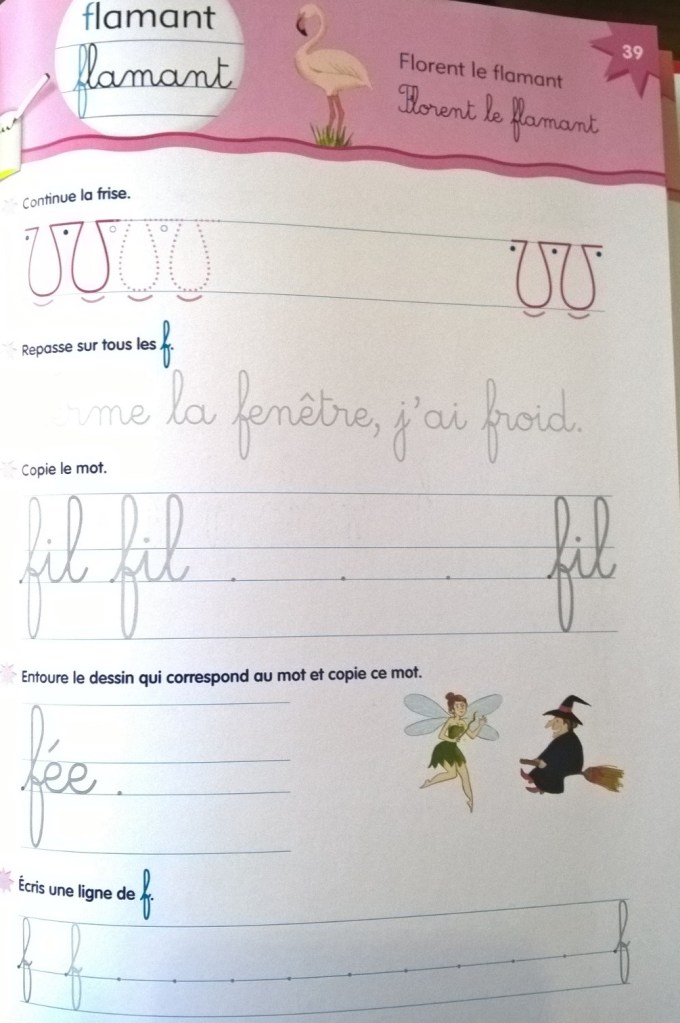 flamant
flamant
39
Florent le flamant
Florent le flamant
Continue la frise.
Repasse sur tous les f.
la fenêtre, j'ai froid.
Copie le mot.
fil fil . . . fil
Entoure le dessin qui correspond au mot et copie ce mot.
fée .
Écris une ligne de f.
f f . . . . . . . . f